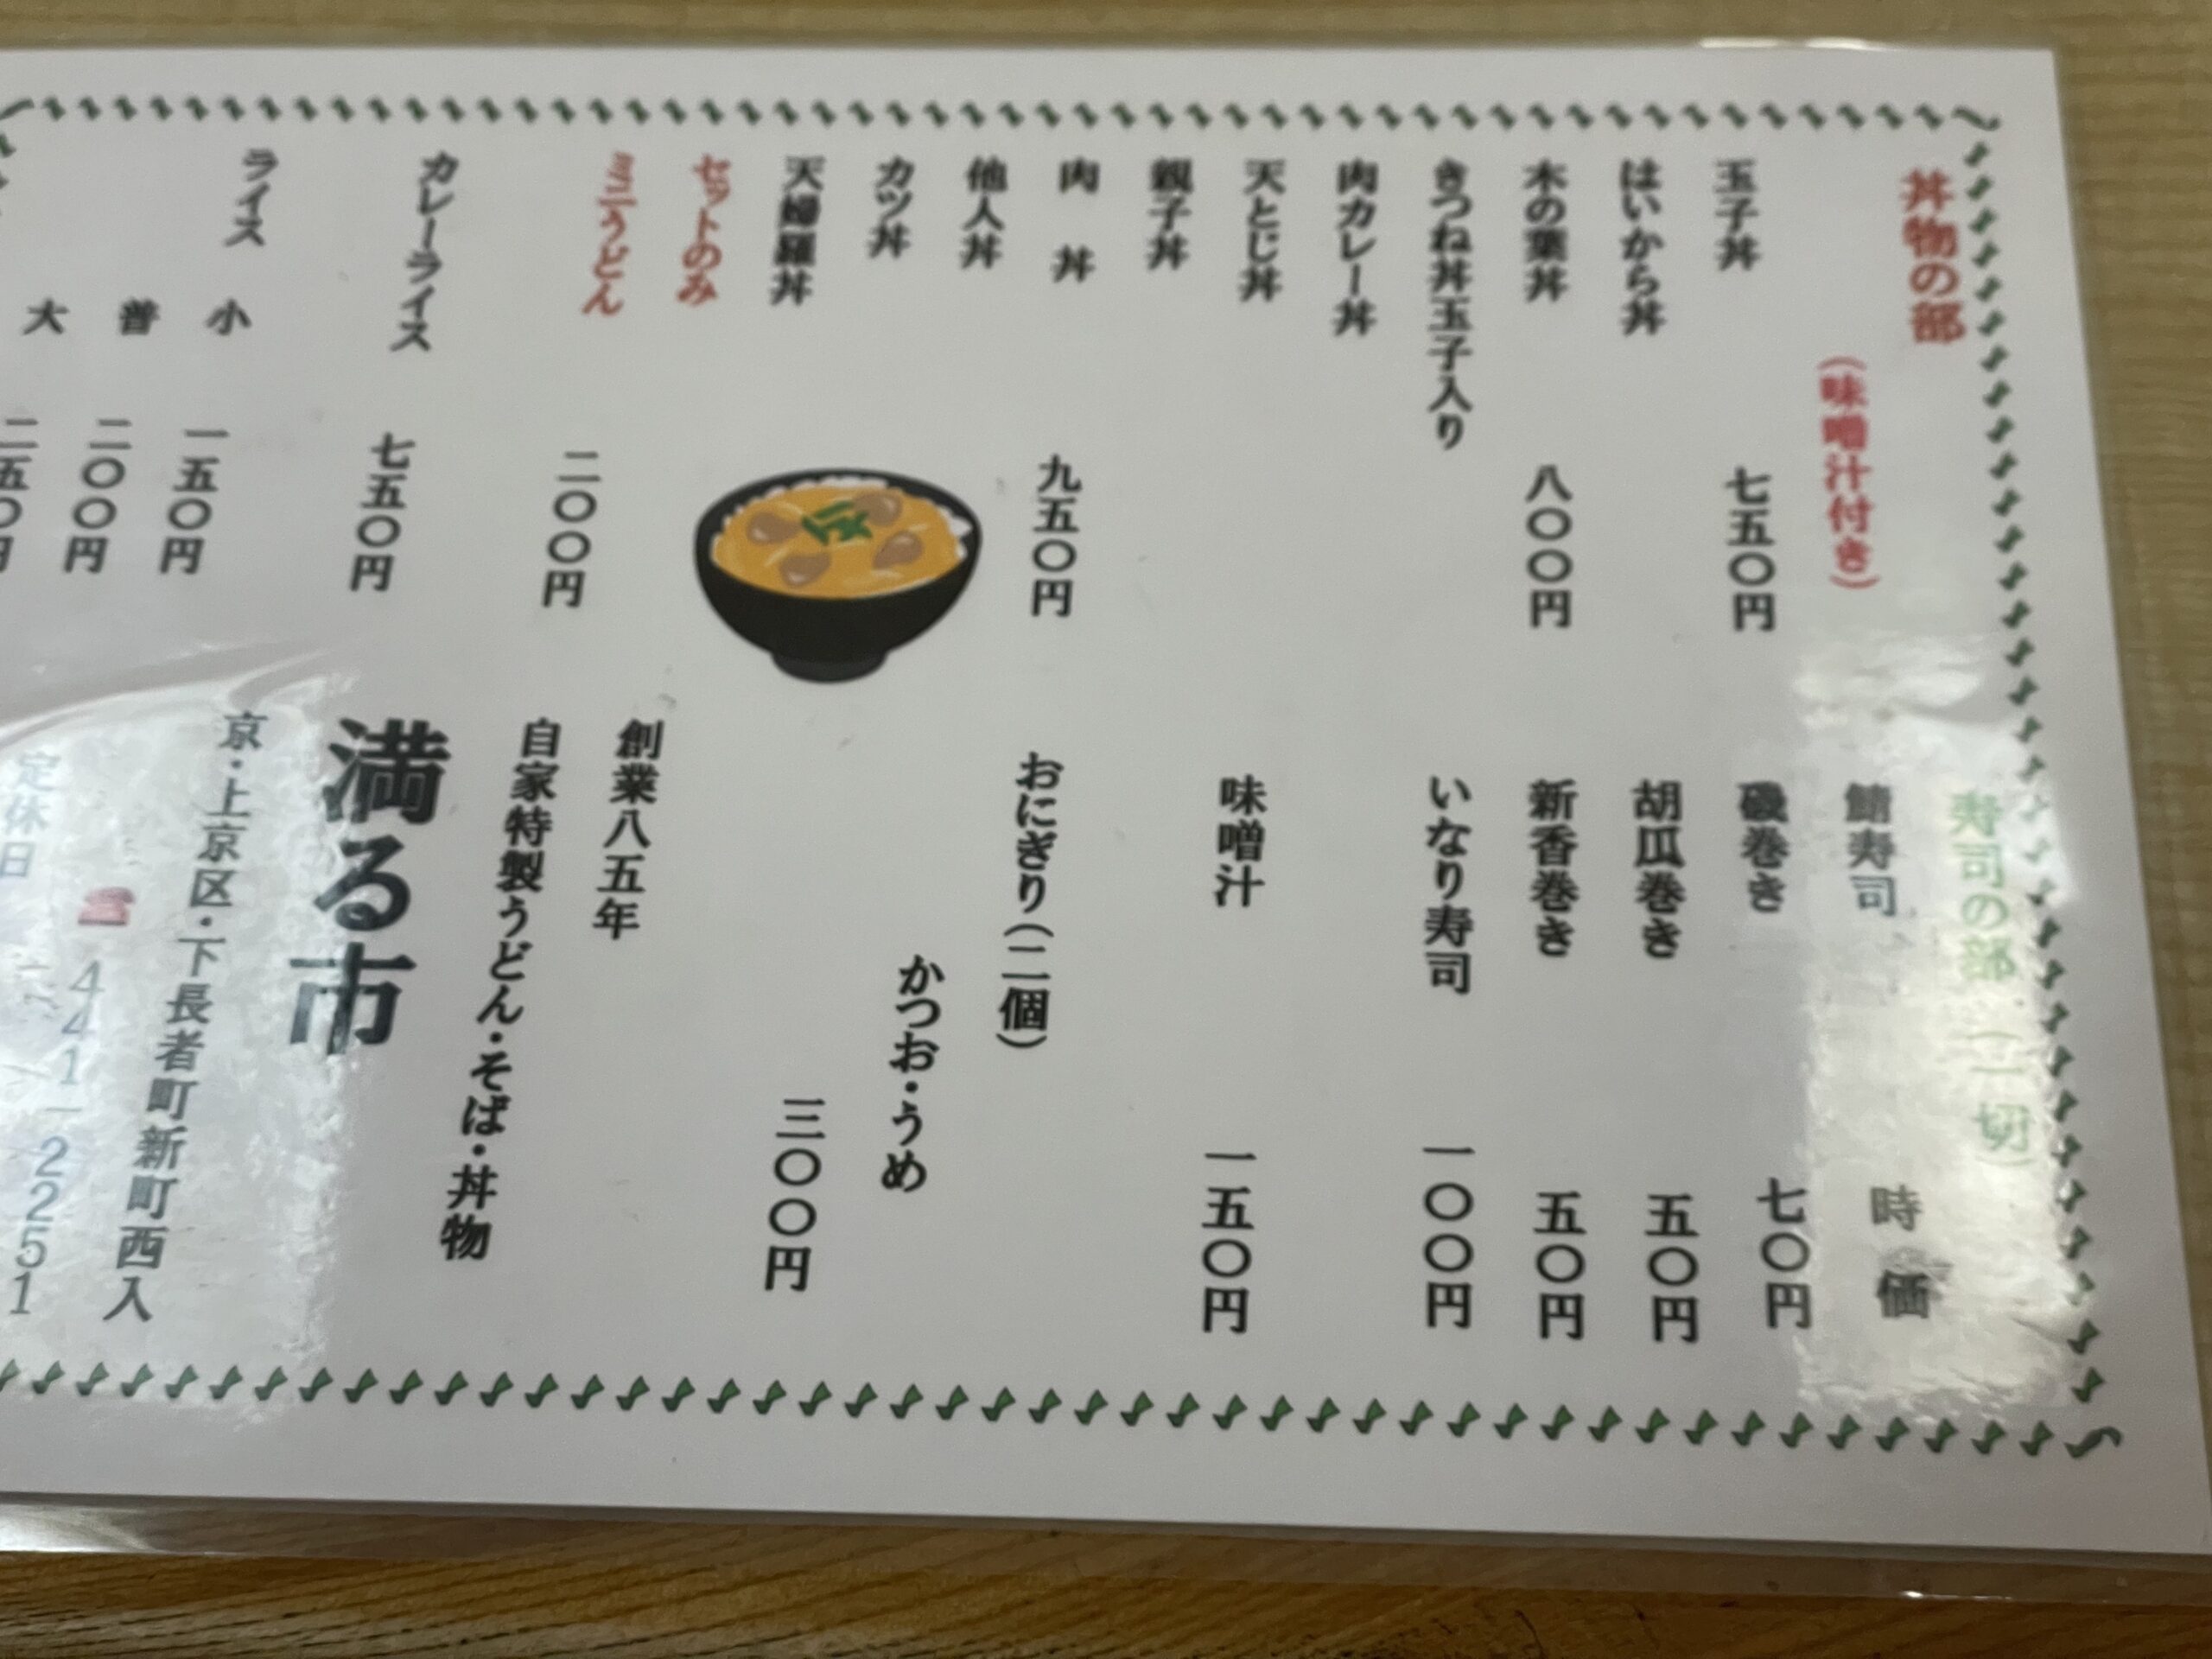 丼物の部
（味噌汁付き）
玉子丼 七五〇円
はいから丼
木の葉丼 八〇〇円
きつね丼玉子入り
肉カレー丼
天とじ丼
親子丼
肉 丼 九五〇円
他人丼
カツ丼
天婦羅丼
セットのみ
ミニうどん 二〇〇円
カレーライス 七五〇円
ライス 小 一五〇円
普 二〇〇円
大 二五〇円
寿司の部（一切）
鯖寿司 時価
磯巻き 七〇円
胡瓜巻き 五〇円
新香巻き 五〇円
いなり寿司 一〇〇円
味噌汁 一五〇円
おにぎり（二個）
かつお・うめ
三〇〇円
創業八五年
自家特製うどん・そば・丼物
満る市
京・上京区・下長者町新町西入
☎441－2251
定休日